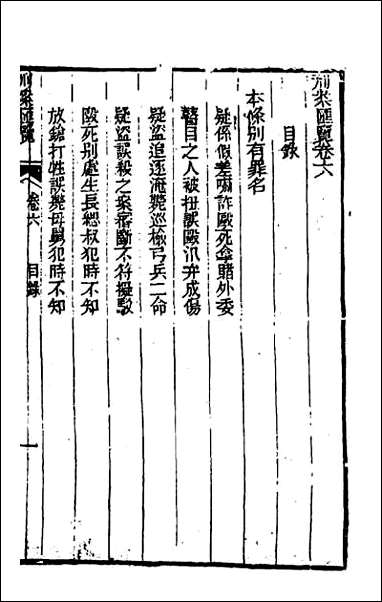 刑案匯覽卷六
目錄
本條別有罪名
疑係假差嚇詐毆死拿賭外委
瞽目之人被扭誤毆汛弁成傷
疑盜追逐淹斃巡檢弓兵二命
疑盜誤殺之案審斷不符擬駁
毆死別處生長緦叔犯時不知
放鎗打牲誤斃母舅犯時不知
刑案匯覽
卷六 目錄
一